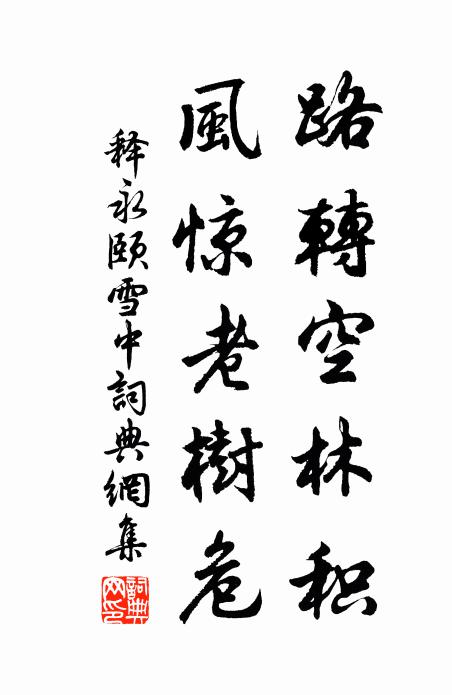 路轉空林积
風惊老樹危
释永颐雪中詞典網集
詞典网印